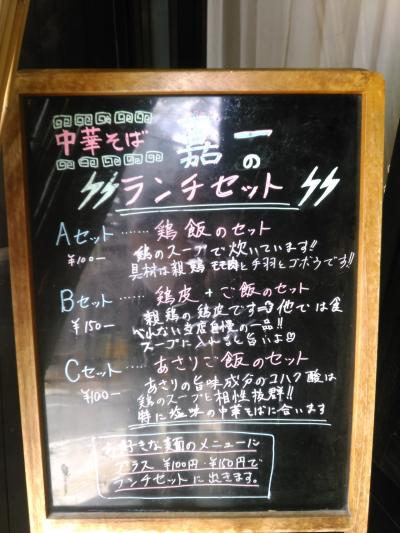 中華そば 嘉一の
ランチセット
Aセット……鶏飯のセット
¥100—
鶏のスープで炊いています!!
具材は親鶏モモ肉と手羽とゴボウです!!
Bセット……鶏皮+ご飯のセット
¥150—
親鶏の鶏皮です 他では食
べれない当店自慢の一品!!
スープに入れても旨いよ
Cセット……あさりご飯のセット
¥100—
あさりの旨味成分のコハク酸は
鶏のスープと相性抜群!!
特に塩味の中華そばに合います
お好きな麺のメニューに
プラス ¥100円・¥150円で
ランチセットに出きます。